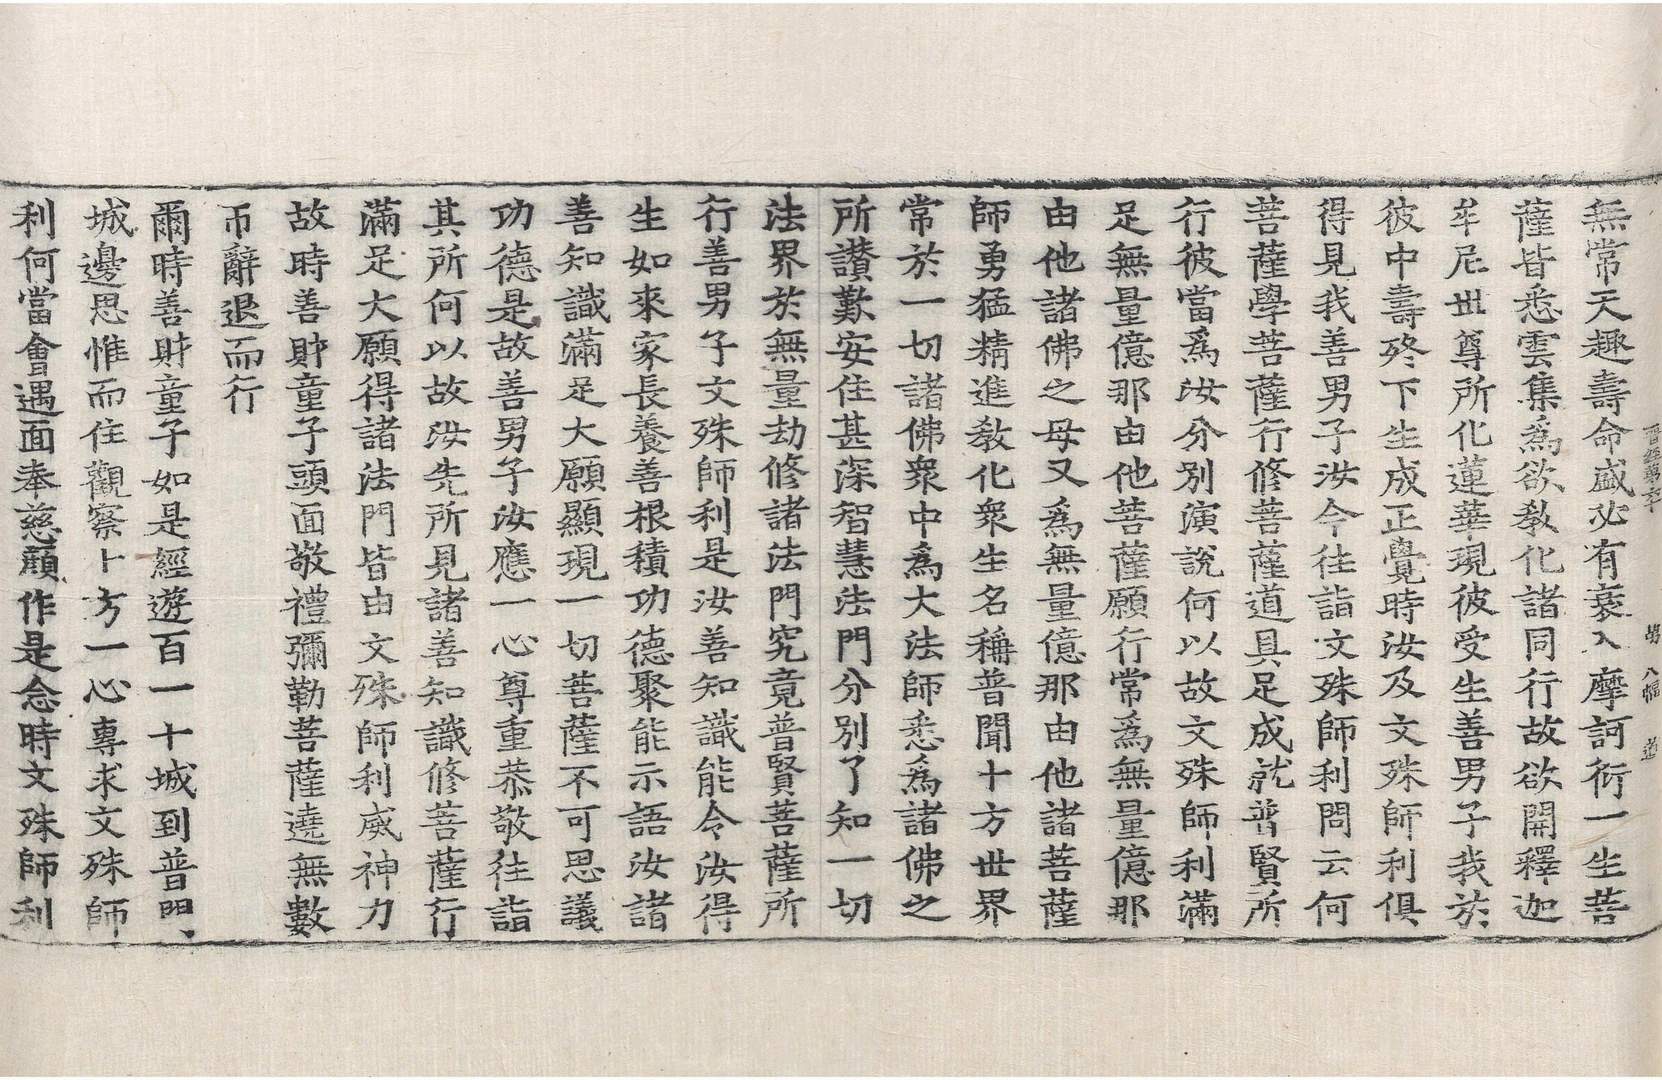 第八幅
無常天趣壽命盛必有衰入摩訶衍一生菩
薩皆悉雲集爲欲教化諸同行故欲開釋迦
牟尼世尊所化蓮華現彼受生善男子我於
彼中壽終下生成正覺時汝及文殊師利俱
得見我善男子汝今往詣文殊師利問云何
菩薩學菩薩行修菩薩道具足成就普賢所
行彼當爲汝分別演說何以故文殊師利滿
足無量億那由他菩薩願行常爲無量億那
由他諸佛之母又爲無量億那由他諸菩薩
師勇猛精進教化衆生名稱普聞十方世界
常於一切諸佛衆中爲大法師悉爲諸佛之
所讃歎安住甚深智慧法門分別了知一切
法界於無量劫修諸法門究竟普賢菩薩所
行善男子文殊師利是汝善知識能令汝得
生如來家長養善根積功德聚能示語汝諸
善知識滿足大願顯現一切菩薩不可思議
功德是故善男子汝應一心尊重恭敬往詣
其所何以故汝先所見諸善知識修菩薩行
滿足大願得諸法門皆由文殊師利威神力
故時善財童子頭面敬禮彌勒菩薩遶無數
帀辭退而行
爾時善財童子如是經遊百一十城到普門
城邊思惟而住觀察十方一心專求文殊師
利何當會遇面奉慈顏作是念時文殊師利